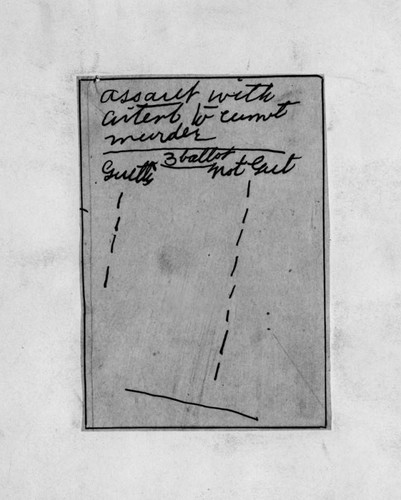 assault with
intent to commit
murder
3 ballot
Guilty Not Guilt